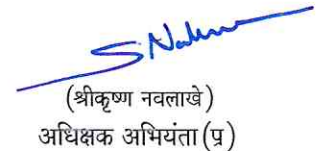 (श्रीकृष्ण नवलाखे)
अधिक्षक अभियंता(प्र)